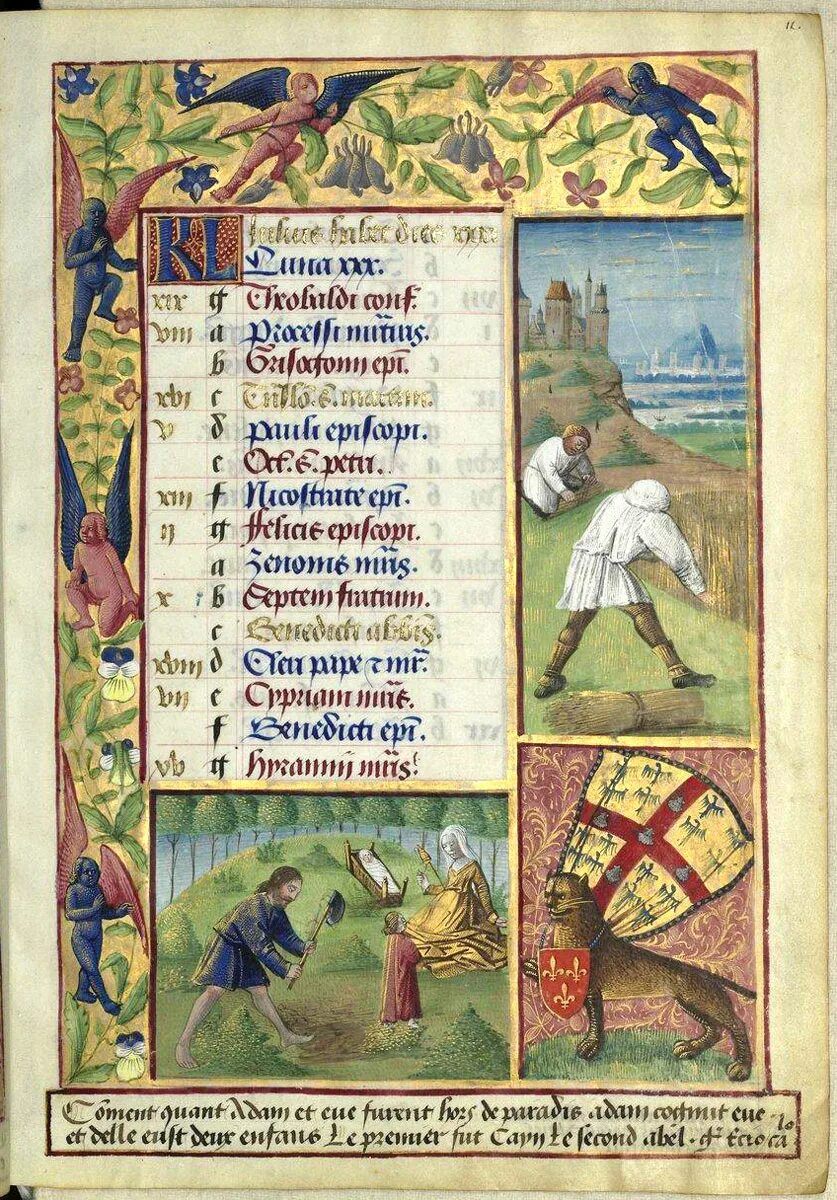 KL Julius habet dies xxxi
Luna xxx.
xix g Theobaldi conf.
viii a Processi mris.
b Grisogoni epi.
xvi c s. martini.
v d Pauli episcopi.
e Oct. s. petri.
xiii f Nicostrate epi.
ii g ffelicis episcopi.
a Zenonis mris.
x b Septem fratrum.
c Benedicti abbis.
xviii d Cleti pape et mr.
vii e Cypriani mris.
f Benedicti epi.
xv g mris.
Coment quant Adam et eve furent hors de paradis adam cognut eve.
et delle eust deux enfans Le premier fut Cayn Le second abel.